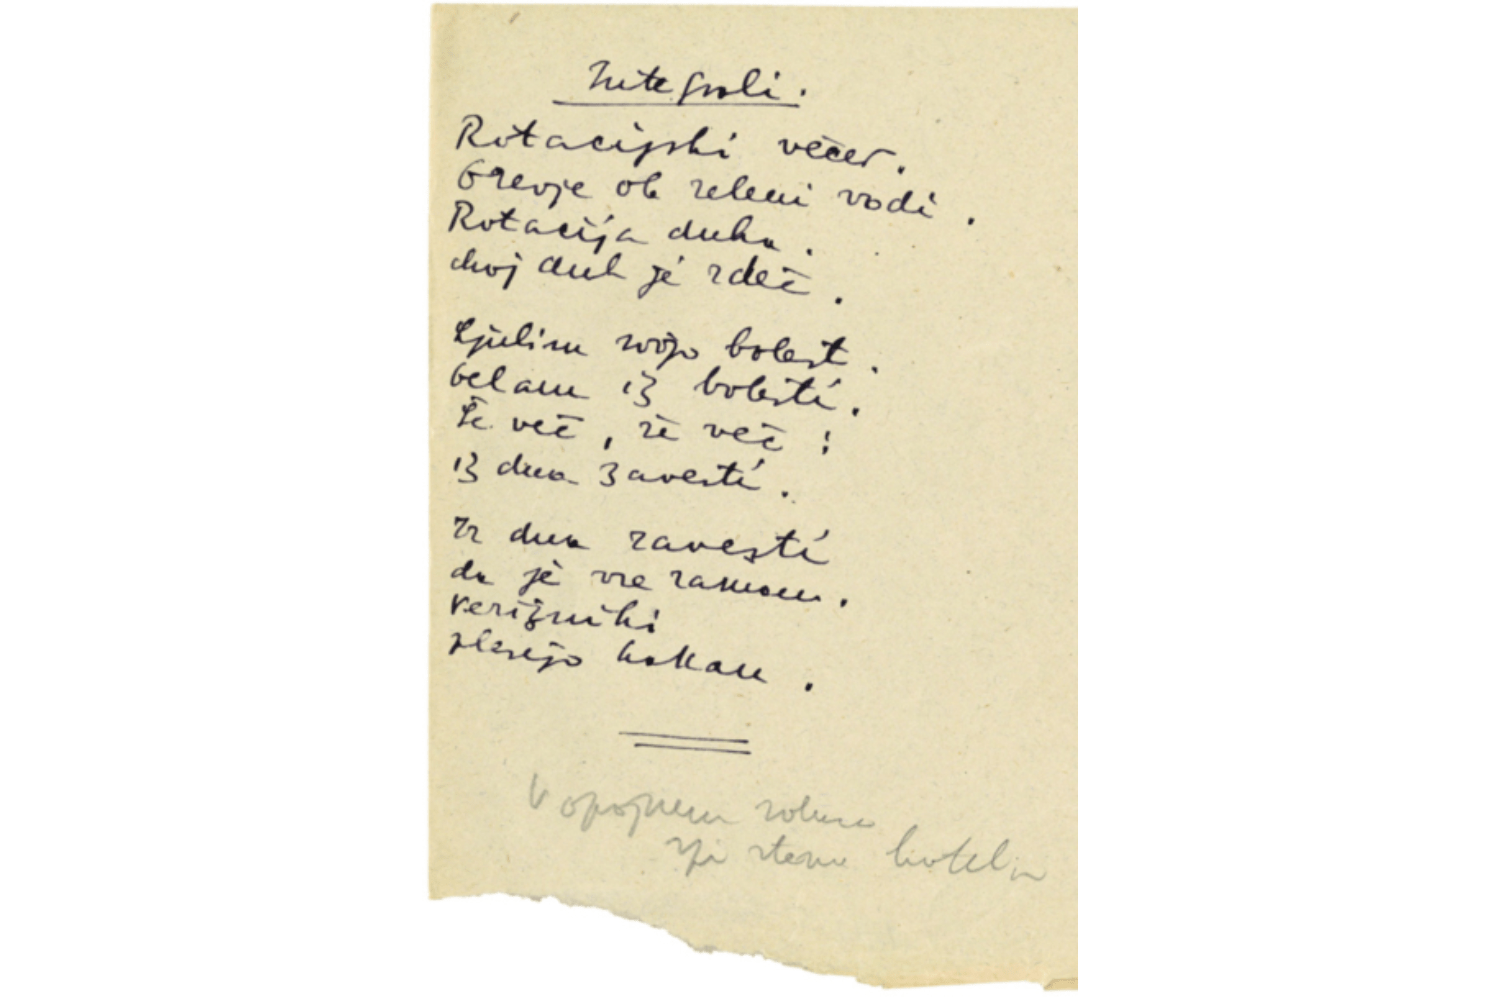 Integrali.
Rotacijski večer.
Drevje ob zeleni vodi.
Rotacija duha.
Moj duh je rdeč.
Ljubim svojo bolest.
Delam iz bolesti.
Še več, še več:
iz dna zavesti.
Iz dna zavesti
da je vse zaman.
Verižniki
plešejo kankan.
V opojnem
spi stena hotela